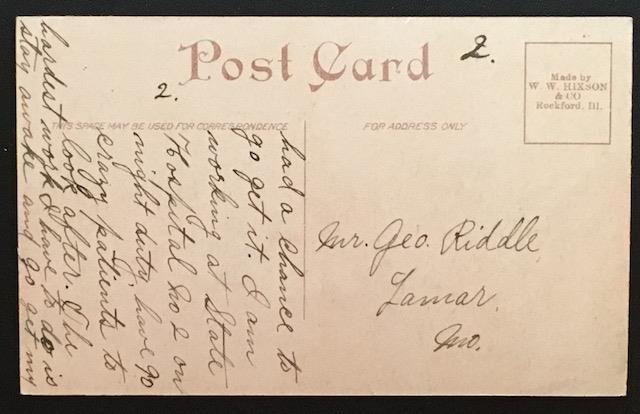 Post Card
2.
2.
Made by
W. W. HIXSON
& CO
Rockford, Ill.
THIS SPACE MAY BE USED FOR CORRESPONDENCE
FOR ADDRESS ONLY
had a chance to
go get it. I am
working at State
Hospital No 2 on
night duty, have 90
crazy patients to
look after. The
hardest work I have to do is
stay awake and go get my
Mr. Geo. Riddle
Lamar,
Mo.